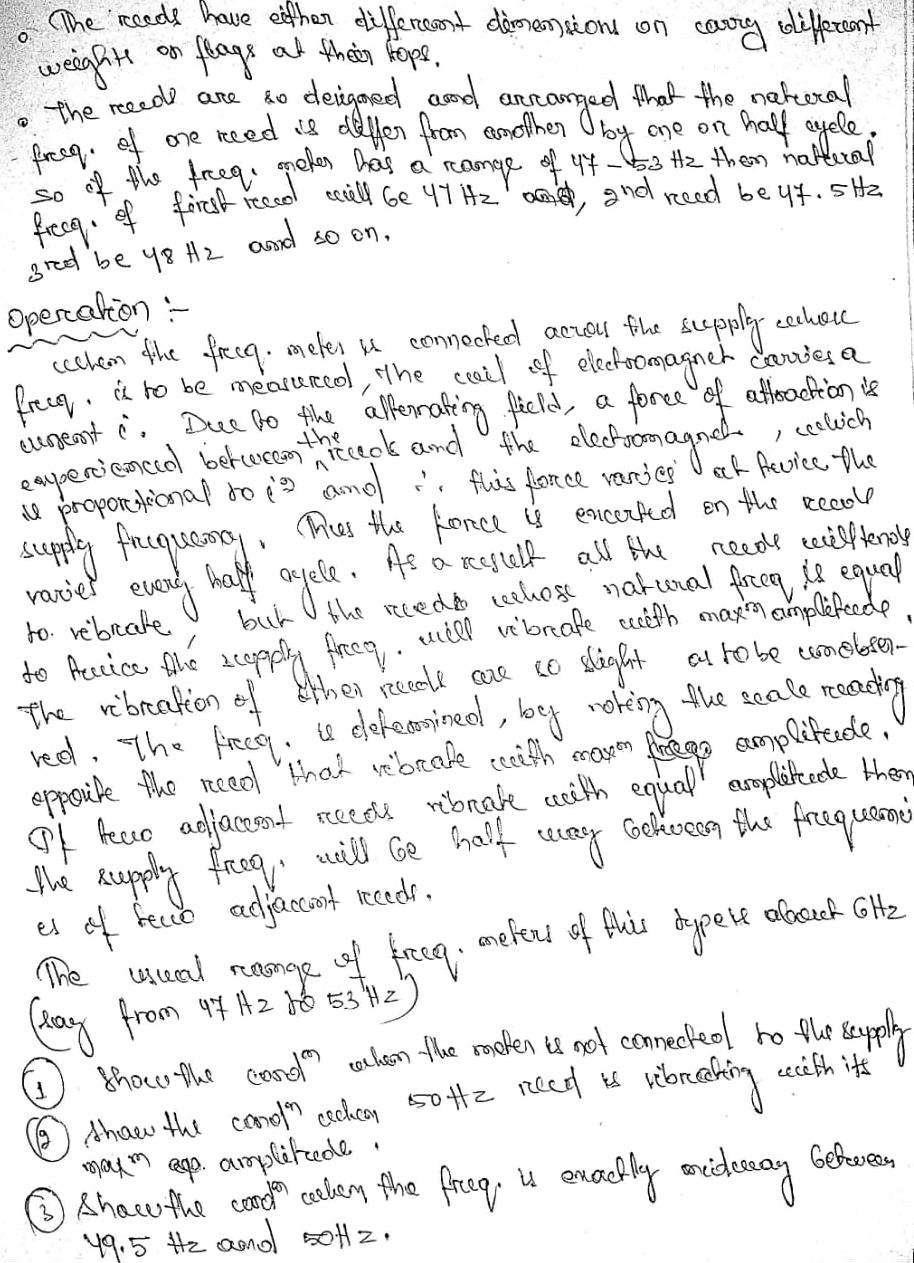 • The reeds have either different dimensions on carry different
weights or flags at their tops.
• The reeds are so designed and arranged that the natural
freq. of one reed is differ from another by one or half cycle.
So if the freq. meter has a range of 47 – 53 Hz then natural
freq. of first reed will be 47 Hz and, 2nd reed be 47.5 Hz
3rd be 48 Hz and so on.
Operation :-
When the freq. meter is connected across the supply whose
freq. is to be measured, the coil of electromagnet carries a
current i. Due to the alternating field, a force of attraction is
experienced between the reeds and the electromagnet, which
is proportional to i² and ∴ this force varies at twice the
supply frequency. Thus the force is exerted on the reeds
varies every half cycle. As a result all the reeds will tends
to vibrate, but the reeds whose natural freq is equal
to twice the supply freq. will vibrate with maxᵐ amplitude.
The vibration of other reeds are so slight as to be unobser-
ved. The freq. is determined, by noting the scale reading
opposite the reed that vibrate with maxᵐ freqs amplitude.
If two adjacent reeds vibrate with equal amplitude then
the supply freq. will be half way between the frequenci
es of two adjacent reeds.
The usual range of freq. meters of this types is about 6Hz
(say from 47 Hz to 53 Hz)
① Show the condⁿ when the meter is not connected to the supply
② Show the condⁿ when 50 Hz reed is vibrating with its
maxᵐ amplitude.
③ Show the condⁿ when the freq. is exactly midway between
49.5 Hz and 50Hz.